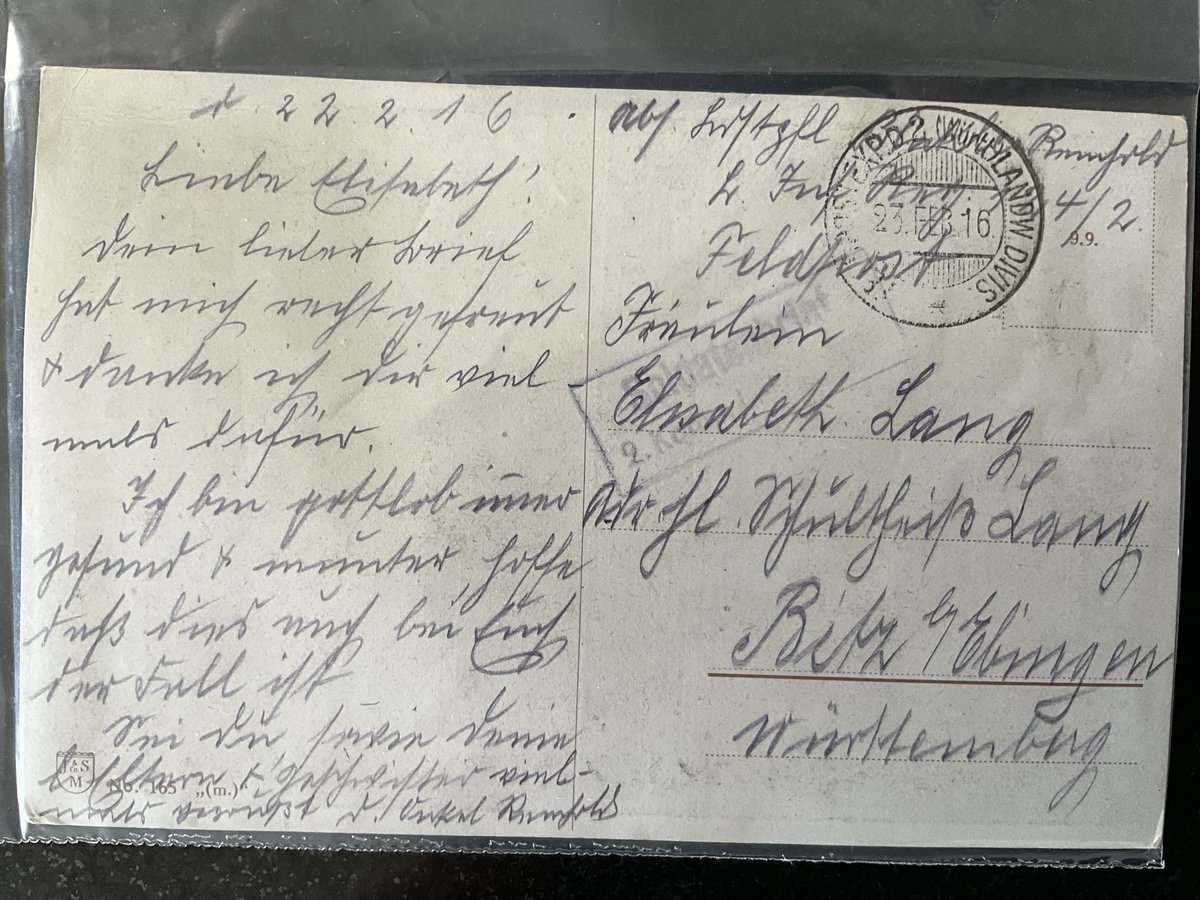 d 22 2 16.
Liebe Elisabeth!
Dein lieber Brief
hat mich recht gefreut
& danke ich dir viel
mals dafür.
Ich bin gottlob immer
gesund & munter, hoffe
daß dies auch bei Euch
der Fall ist
Sei du, sowie deine
l. Eltern & Geschwister viel-
mals gegrüßt d. Onkel Reinhold
J S & Co. M
No. 165 „(m.)“
Abs Lustpfl Reinhold
L Inf Reg. 4/2.
Feldpost
23. FEB. 16.
LANDW. DIVIS.
9.9.
Fräulein
Elisabeth Lang
Adr hl. Schultheiß Lang
Bitz b/Ebingen
Württemberg
2. K